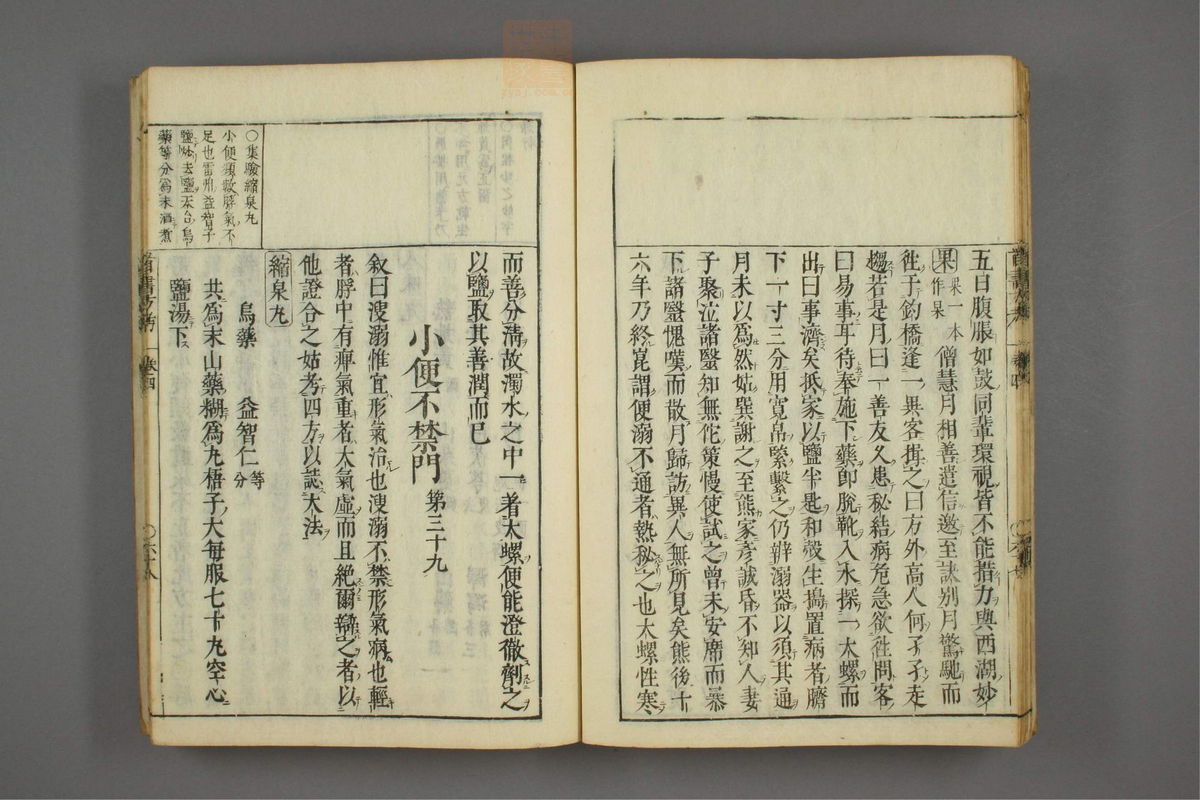 五日腹脹如鼓同輩環視皆不能措力與西湖妙
果 果一本作杲 僧慧月相善遣信邀至訣別月驚馳而
徃于釣橋逢一異客揖之曰方外高人何孑孑走
趨若是月曰一善友久患秘結病危急欲徃問客
曰易事耳待奉施下藥即脫靴入水探一大螺而
出曰事濟矣抵家以鹽半匙和殼生搗置病者臍
下一寸三分用寬帛緊繫之仍辨溺器以須其通
月未以爲然姑巽謝之至熊家彦誠昏不知人妻
子聚泣諸醫知無佗策慢使試之曾未安席而暴
下諸醫愧嘆而散月歸訪異人無所見矣熊後十
六年乃終崑謂便溺不通者熱秘之也大螺性寒
而善分淸故濁水之中一著大螺便能澄徹劑之
以鹽取其善潤而巳
小便不禁門 第三十九
叙曰溲溺惟宜形氣治也溲溺不禁形氣病也輕
者脬中有痺氣重者大氣虛而且絶爾辯之者以
他證合之姑考四方以誌大法
縮泉丸
烏藥 益智仁 等分
共爲末山藥糊爲丸梧子大每服七十丸空心
鹽湯下
○集驗縮泉丸
小便頻數脬氣不
足也雷州益智子
鹽炒去鹽天台烏
藥等分爲末酒煮
卷四
○六十八